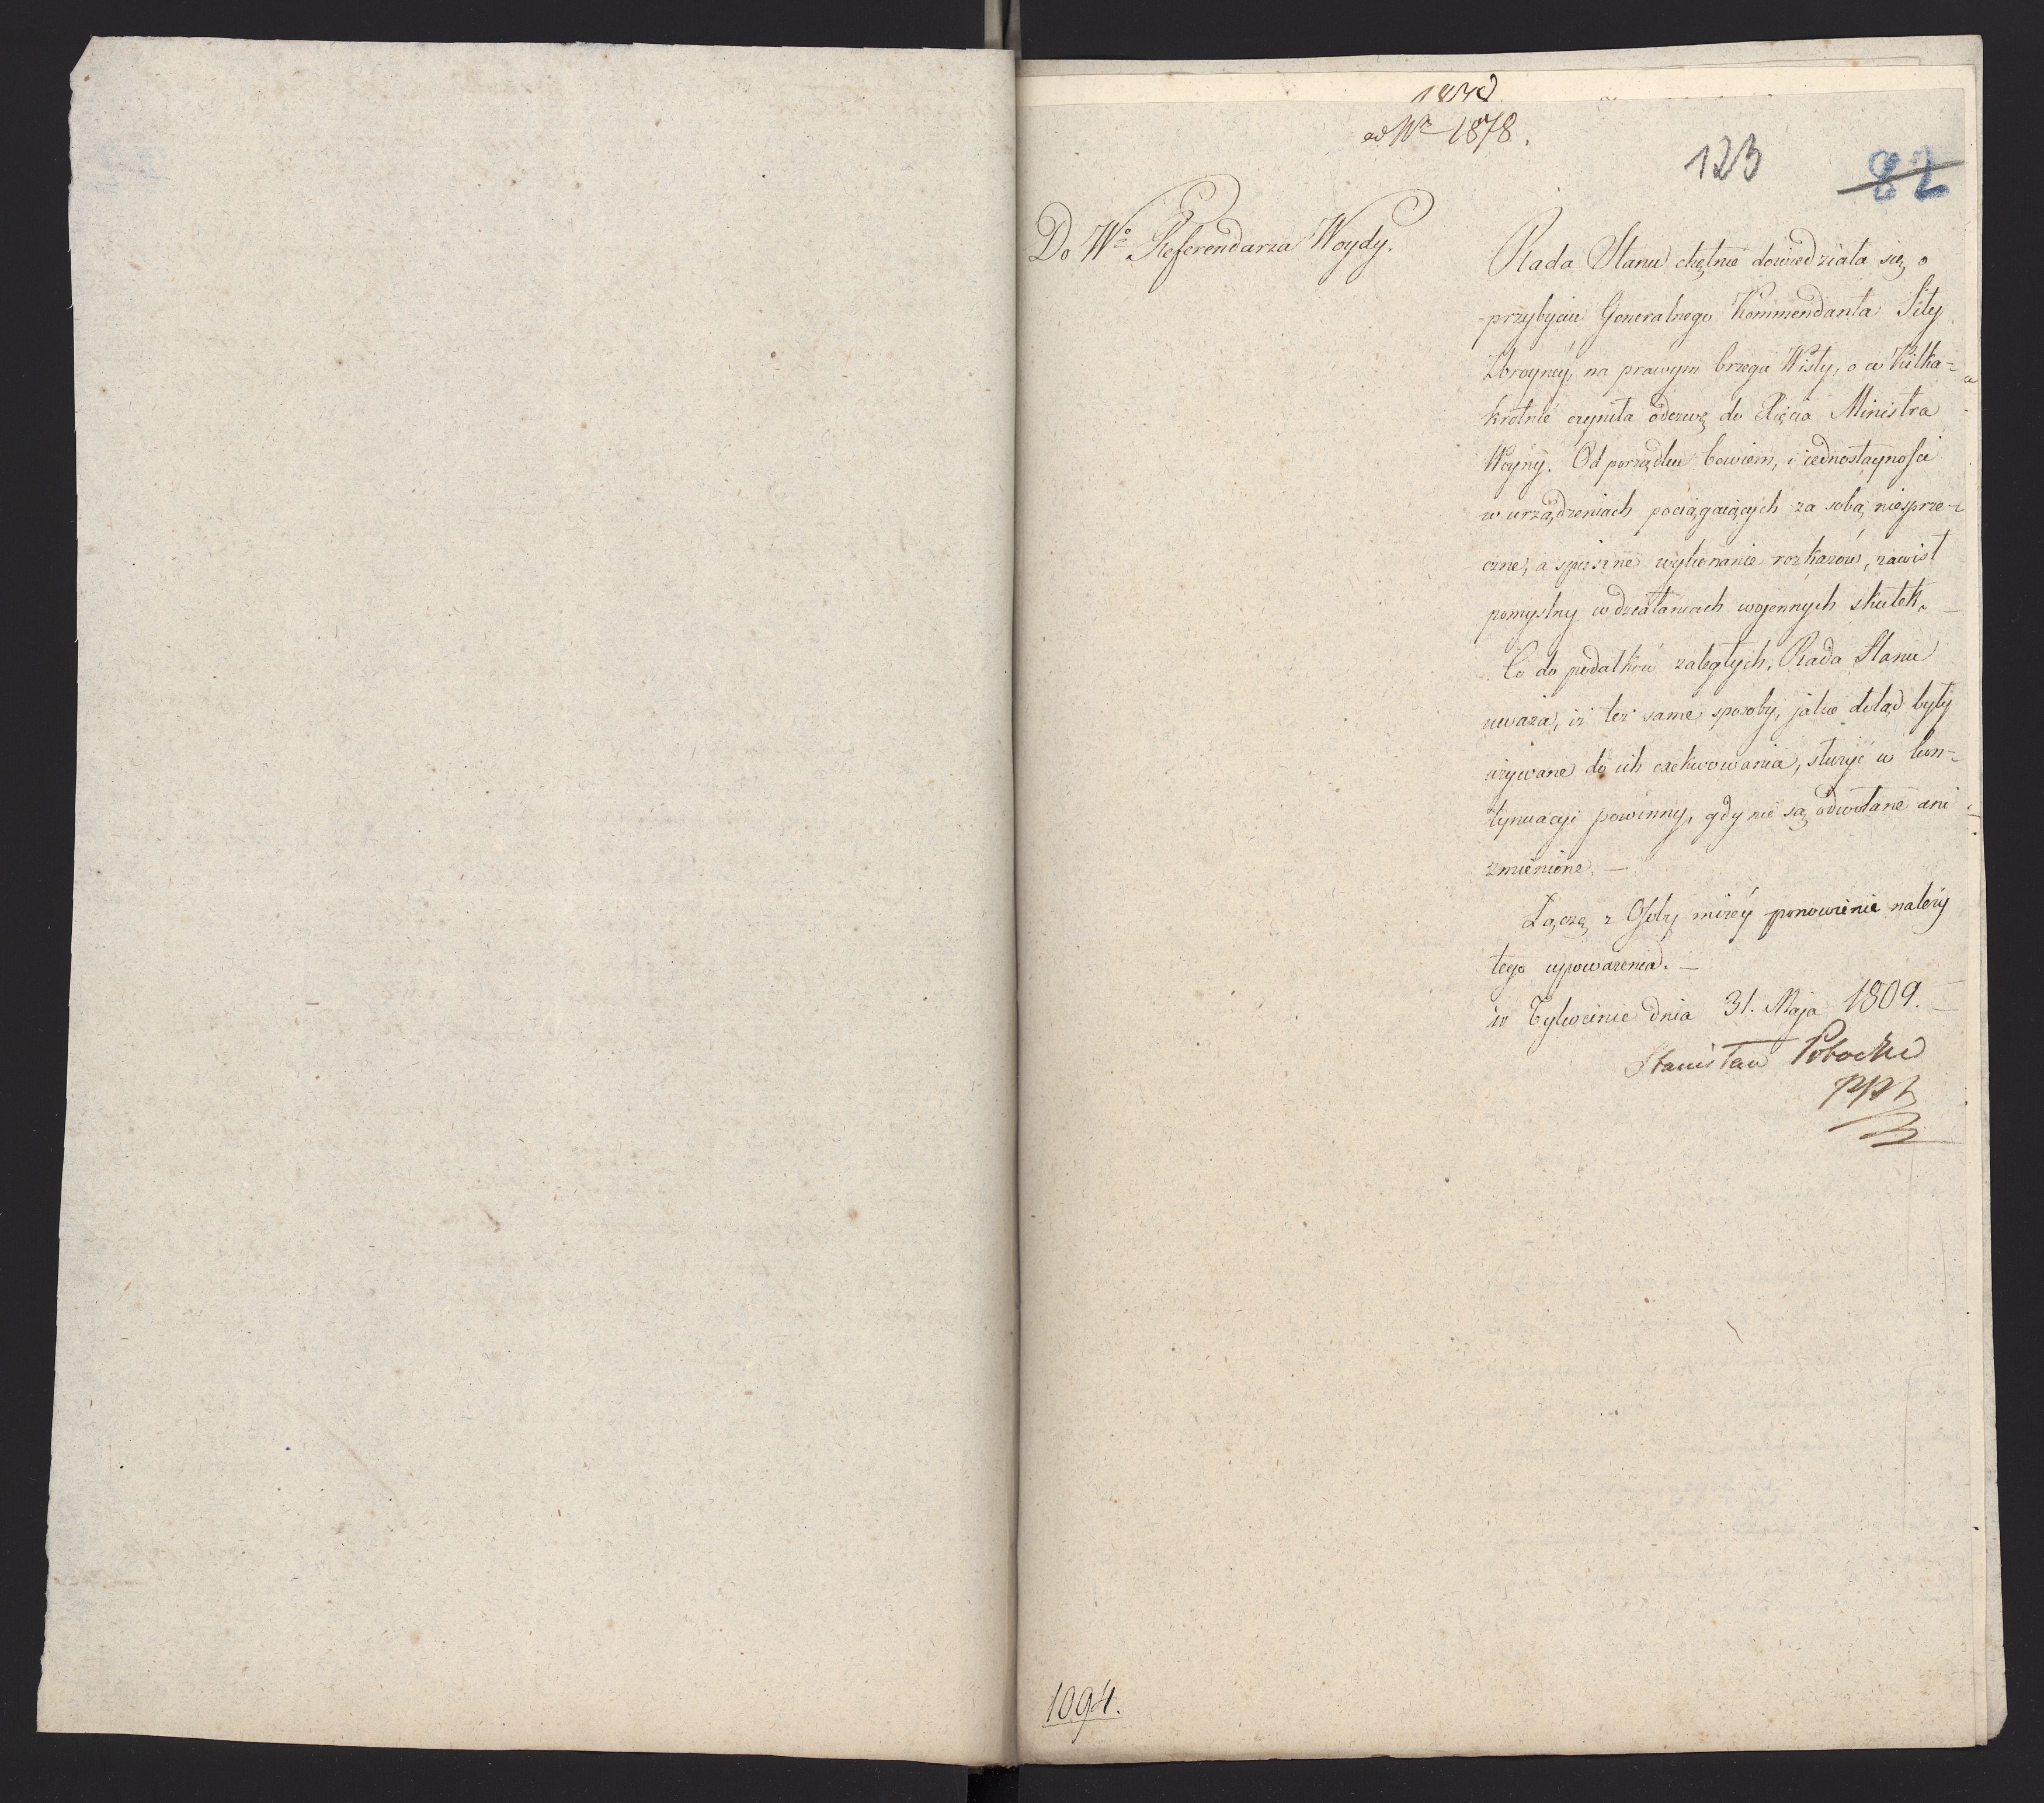 ad Nr 1878.
123
82
Do Wo Referendarza Woydy.
Rada Stanu chętnie dowiedziała się o
przybyciu Generalnego Kommendanta Siły
Zbroyney, na prawym brzegu Wisły, o co kilka-
krotnie czyniła odezwę do Xięcia Ministra
Woyny. Od porządku bowiem, i iednostayności
w urządzeniach pociągaiących za sobą niesprze-
czne, a spieszne wykonanie rozkazów, zawisł
pomyslny w działaniach wojennych skutek. —
Co do podatków zaległych, Rada Stanu
uważa, iż też same sposoby, jakie dotąd były
używane do ich exekwowania, służyć w kon-
tynuacyi powinny, gdy nie są odwołane ani
zmienione. —
Łączę z Osoby moiéy ponowienie należy
tego upoważenia. —
w Tykocinie dnia 31. Maja 1809. —
Stanisław Potocki
ppt
1094.